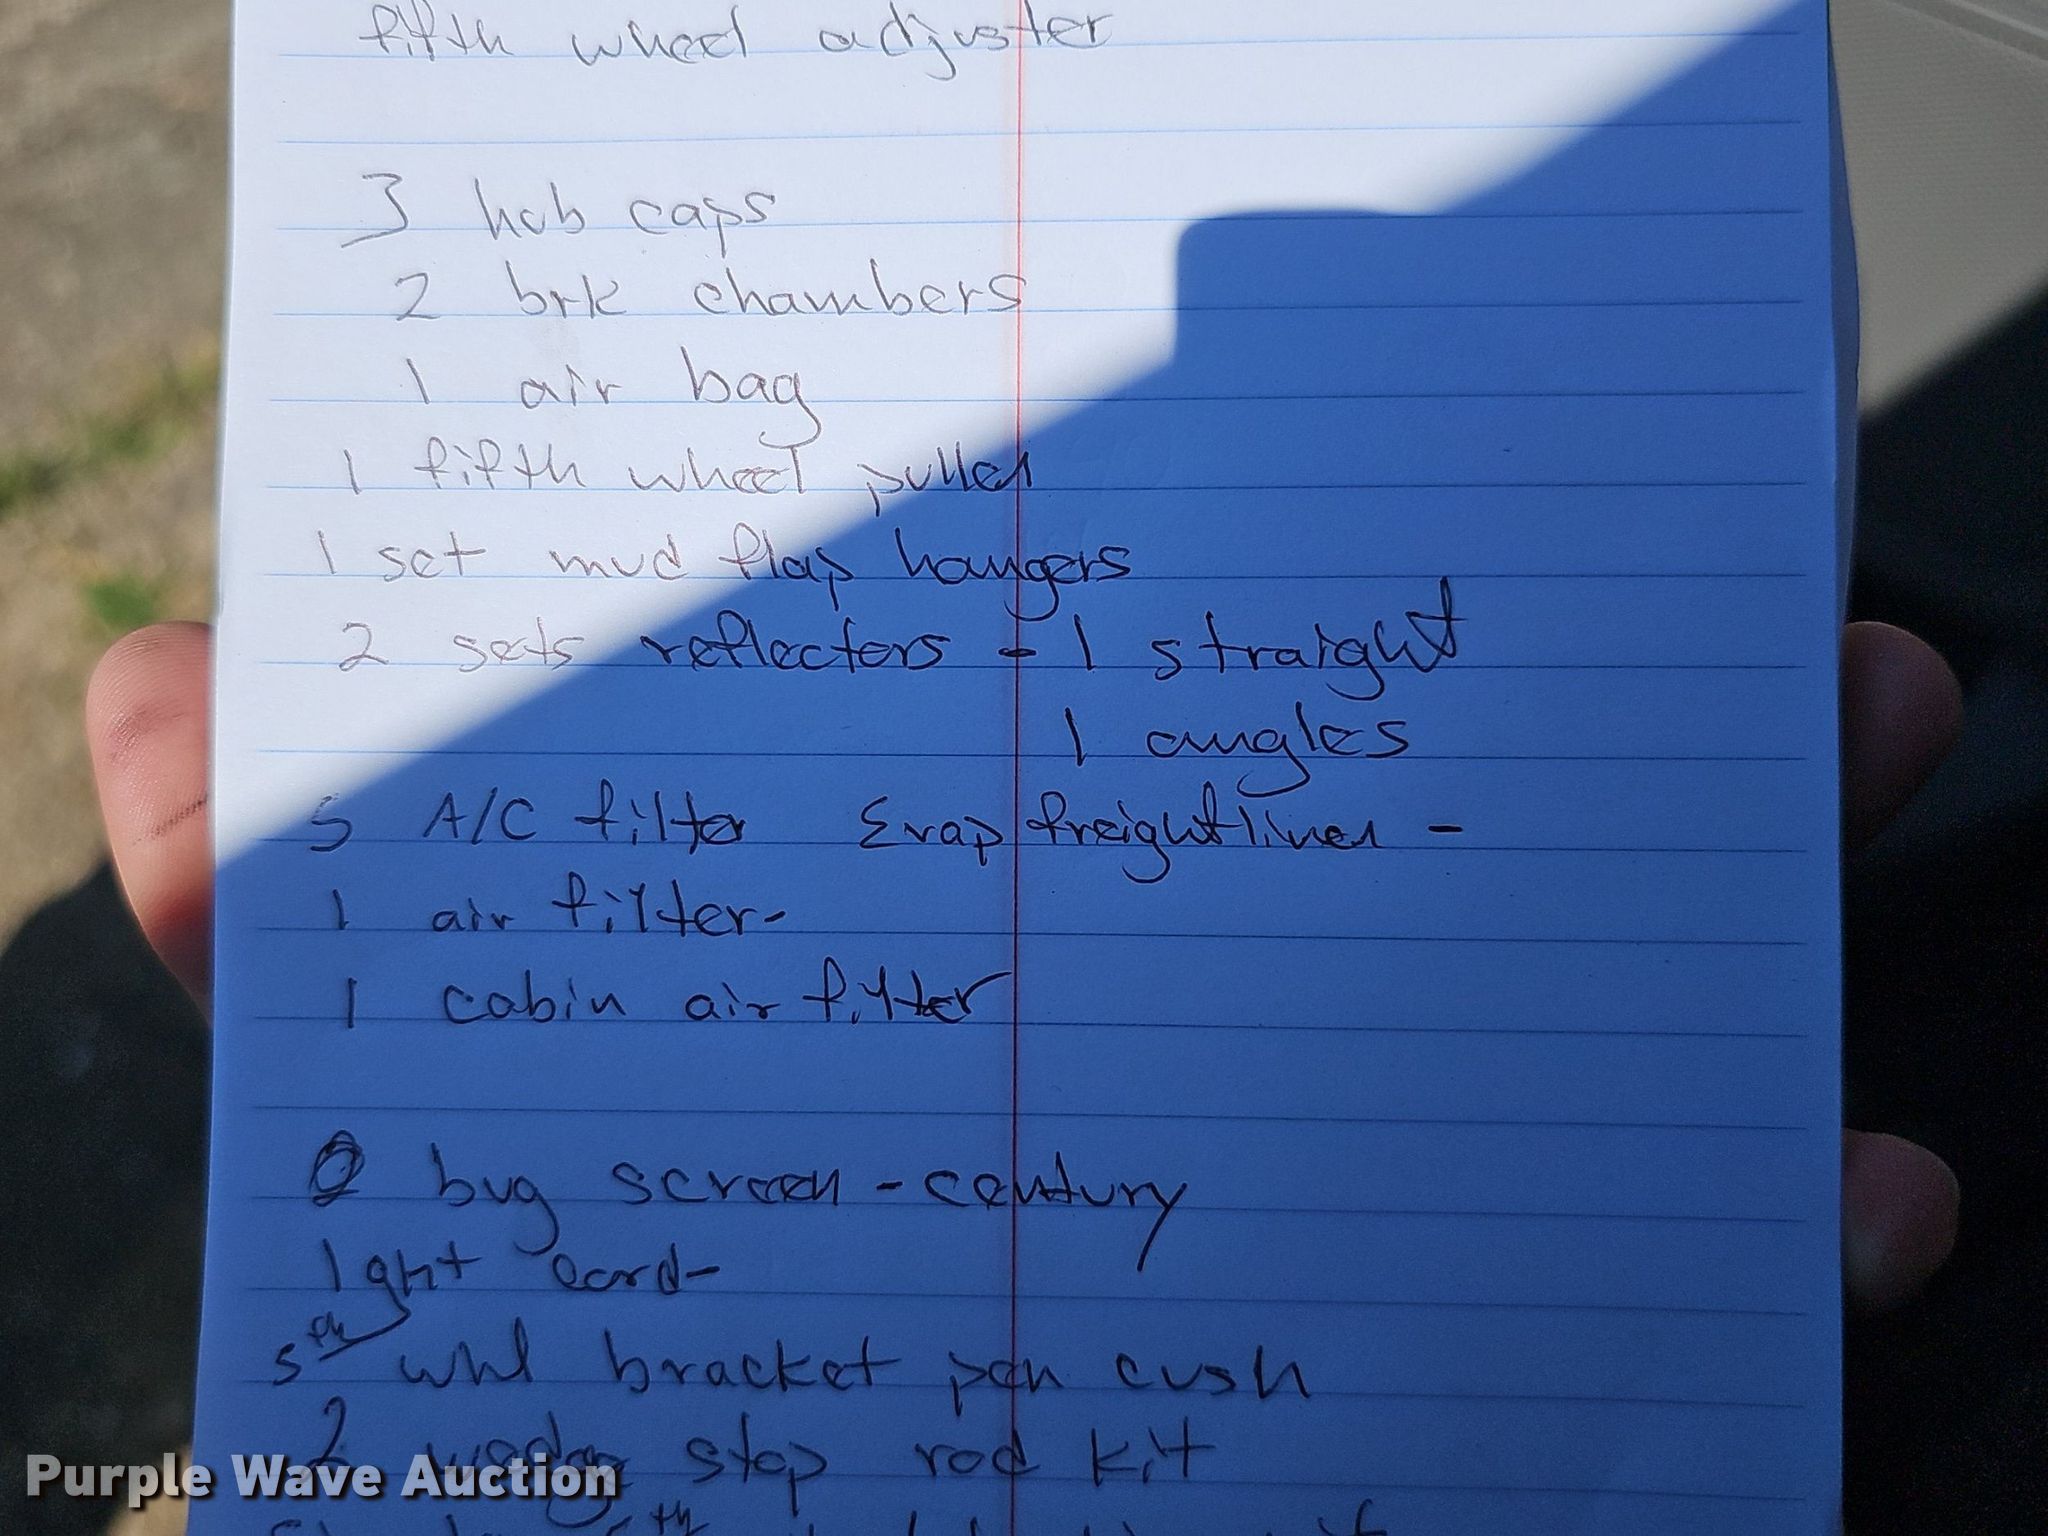 fifth wheel adjuster
3 hub caps
2 brk chambers
1 air bag
1 fifth wheel puller
1 set mud flap hangers
2 sets reflectors - 1 straight
1 angles
5 A/C filter Evap freightliner -
1 air filter-
1 cabin air filter
bug screen - century
card-
5th whl bracket pen cush
2 wedge stop rod kit
Purple Wave Auction